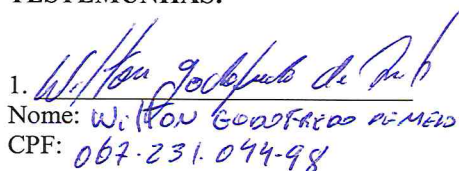 TESTEMUNHAS:
1. Wilton Godofredo de
Nome: Wilton GODOFREDO DE MELO
CPF: 067.231.044-98